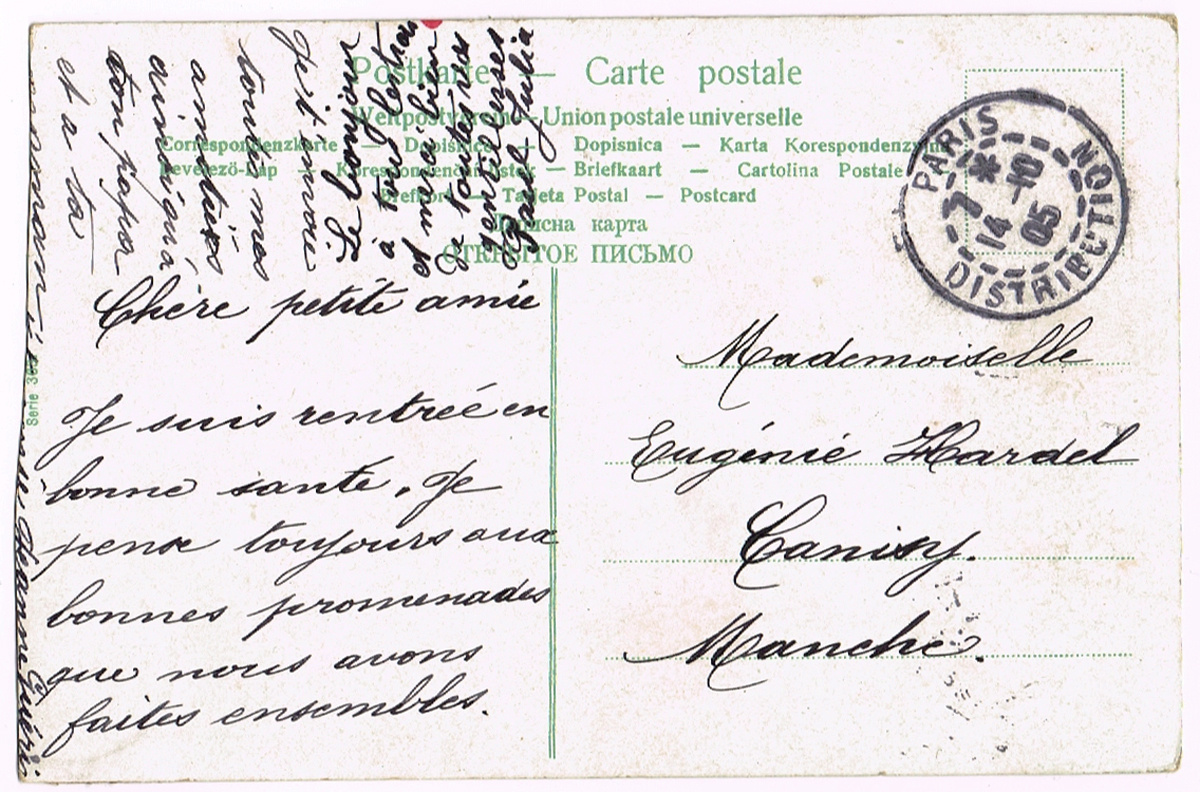 Postkarte — Carte postale
Weltpostverein — Union postale universelle
Correspondenzkarte — Dopisnice — Dopisnica — Karta Korespondenzyjna
Levelező-Lap — Korespondenčni listek — Briefkaart — Cartolina Postale
Brefkort — Tarjeta Postal — Postcard
карта
ОТКРЫТОЕ ПИСЬМО
PARIS DISTRIBUTION
7 * 40
14 -10
05
Chère petite amie
Je suis rentrée en
bonne santé, Je
pense toujours aux
bonnes promenades
que nous avons
faites ensembles.
Je t'envoie
toute mes
amitiées
ainsi qu'à
ton papa
et a ta
maman
Jeanne Guérin
Bonjour
à tous
et merci bien
de toutes ses
gentillesses
Julia
Serie
Mademoiselle
Eugénie Hardel
Canisy.
Manche.